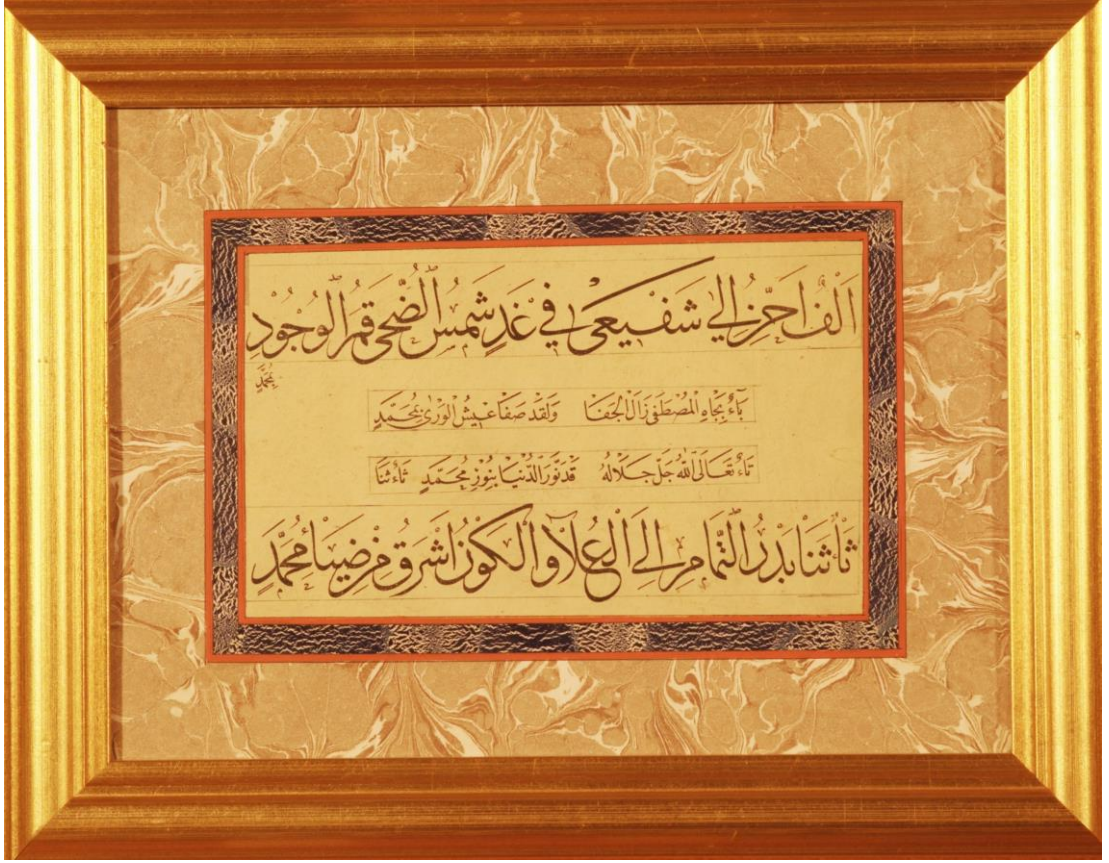 اَلِفُ اَحِنُّ اِلىٰ شَفِيعىٖ فِي غَدٍ شَمْسُ الضُّحىٰ قَمَرُ الْوُجُودِ
مُحَمَّدٍ
بَاءٌ بِجَاهِ الْمُصْطَفىٰ زَالَ الْجَفَا وَلَقَدْ صَفَا عَيْشُ الْوَرىٰ بِمُحَمَّدٍ
تَاءٌ تَعَالَى اللّٰهُ جَلَّ جَلَالُهُ قَدْ نَوَّرَ الدُّنْيَا بِنُورِ مُحَمَّدٍ ثَاءٌ ثَنَا
ثَاءٌ ثَنَا بَدْرُ التَّمَامِ اِلَى الْعُلَا وَالْكَوْنُ اَشْرَقَ مِنْ ضِيَاءِ مُحَمَّدٍ